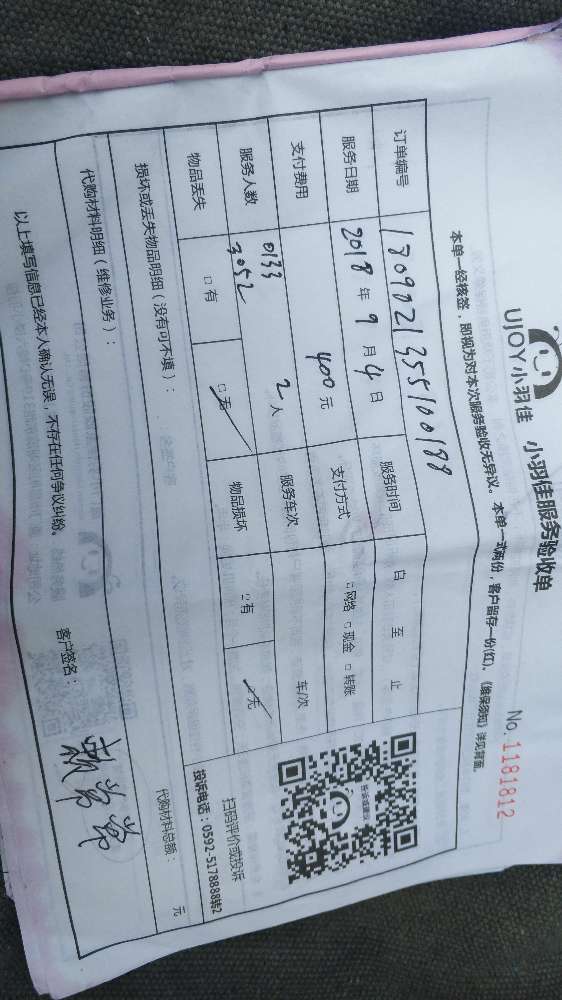 UJOY小羽佳 小羽佳服务验收单
No.1181812
本单一经核签，即视为对本次服务验收无异议。本单一式两份，客户留存一份(红)、《维保须知》详见背面。
订单编号 1809021355100188
服务时间 自 至 止
服务日期 2018年9月4日
支付方式 □网络 □现金 □转账
支付费用 400元
服务车次 车/次
服务人数 0133 3052 2人
物品丢失 □有 □无
物品损坏 □有 □无
扫码评价或投诉
投诉电话：0592-5178888转2
损坏或丢失物品明细（没有可不填）：
代购材料明细（维修业务）：
代购材料总额： 元
以上填写信息已经本人确认无误，不存在任何争议纠纷。
客户签名：